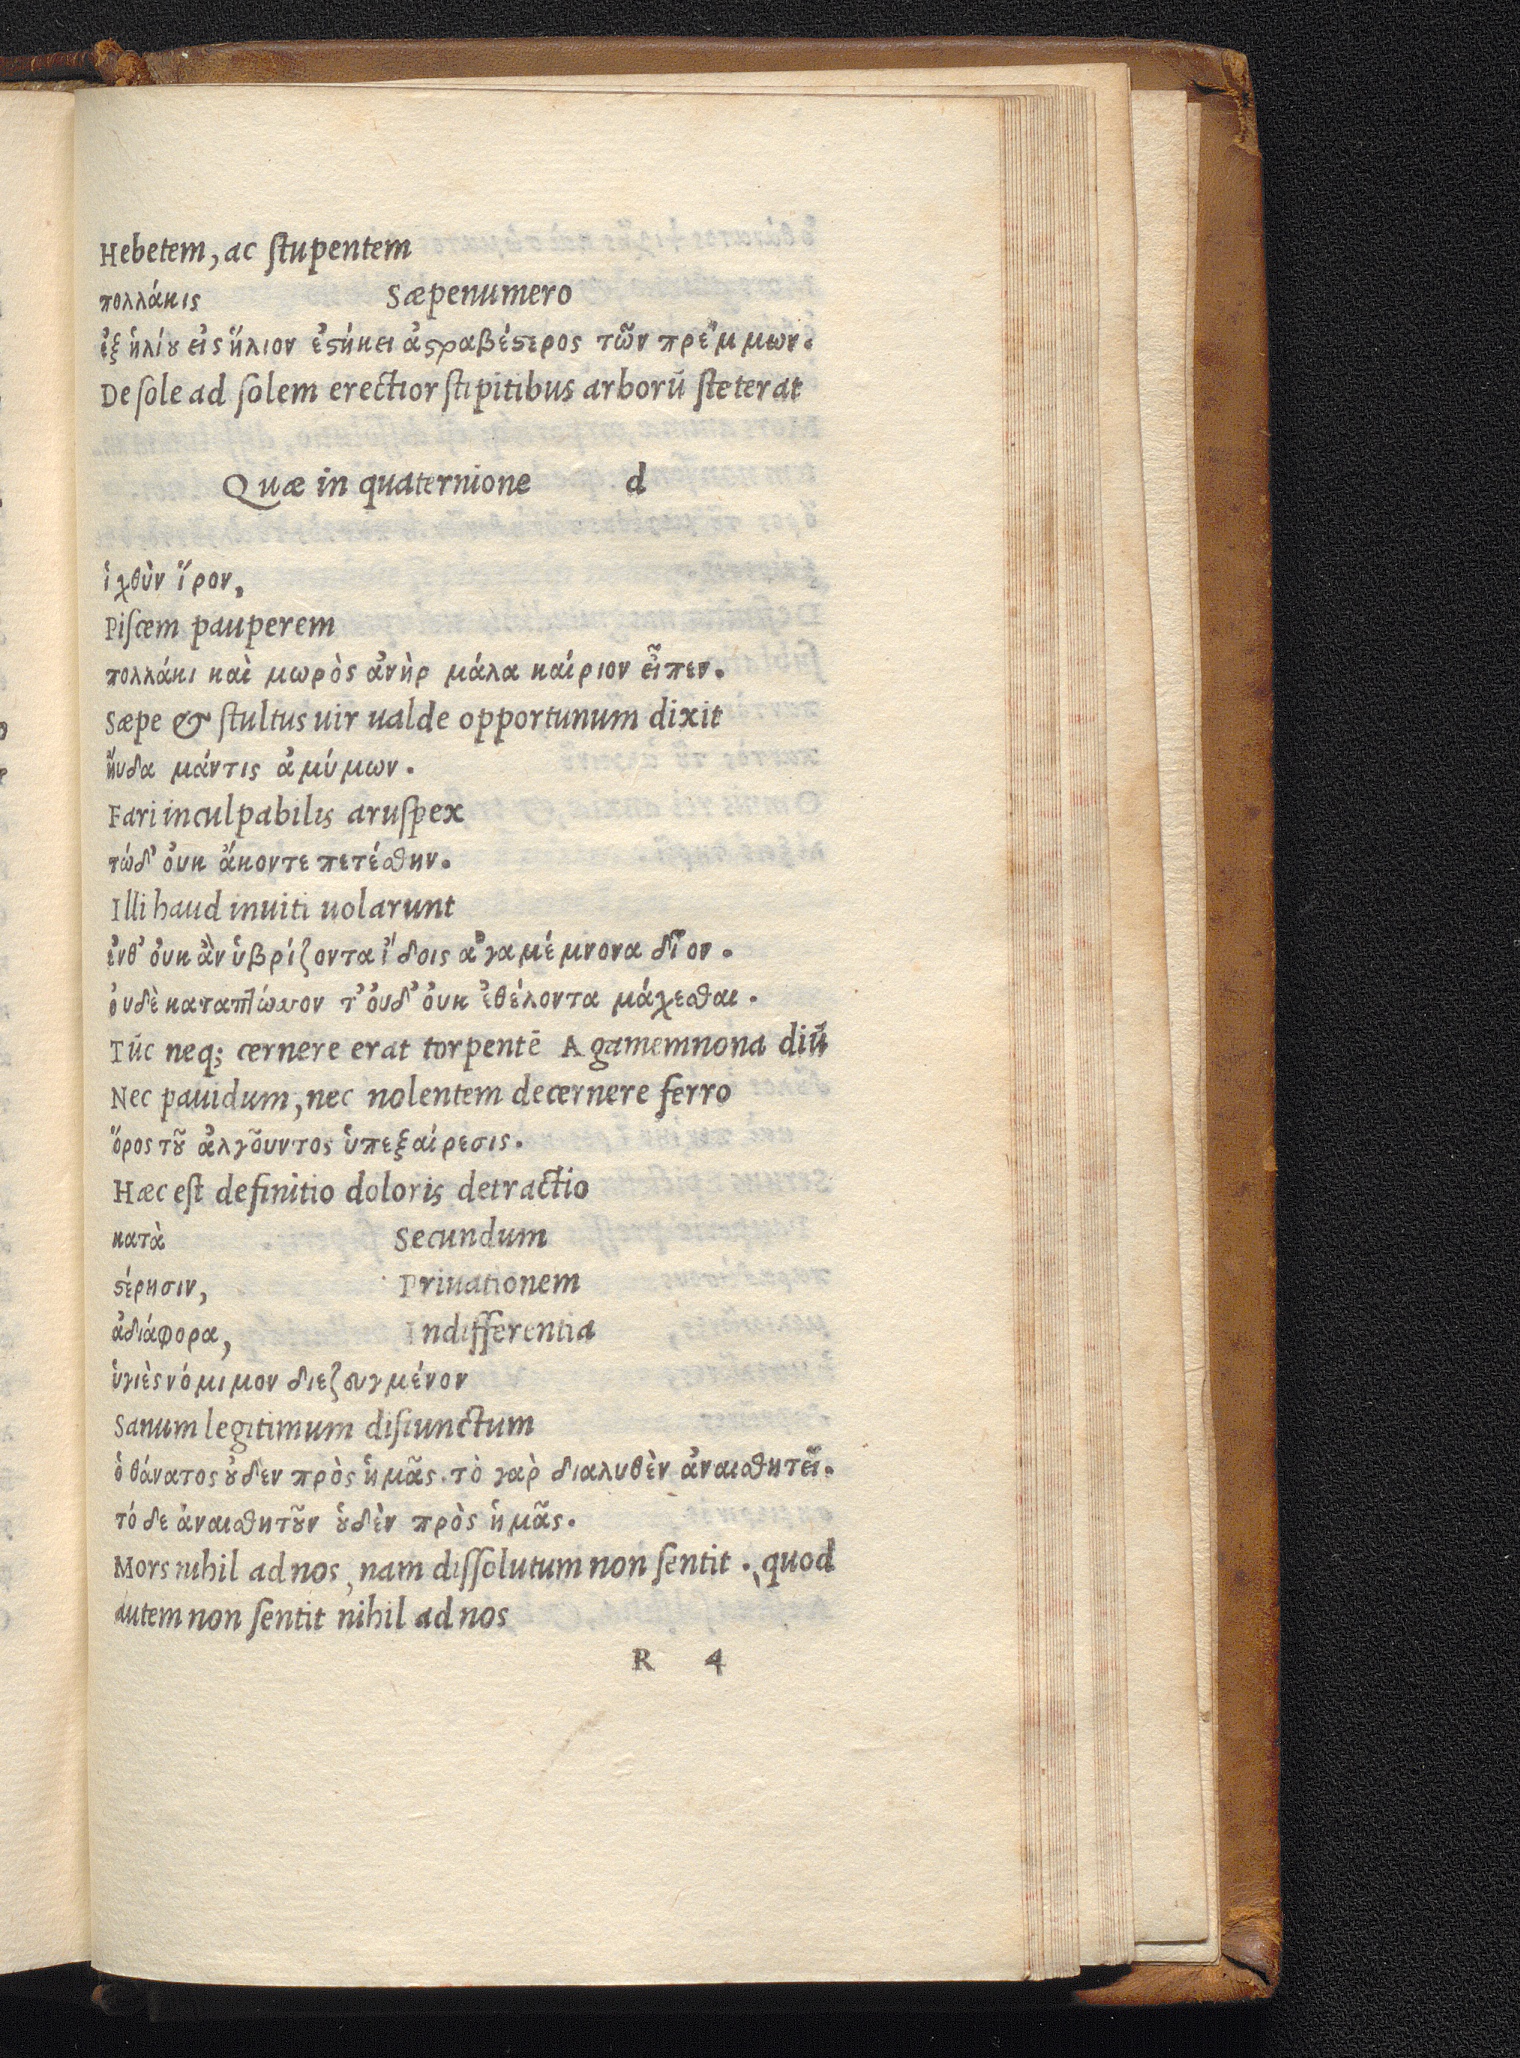 Hebetem, ac ſtupentem
πολλάκις Sæpenumero
ἐξ ἡλίου εἰς ἥλιον ἑστήκει ἀστραβέστερος τῶν πρέμμων.
De ſole ad ſolem erectior ſtipitibus arborũ ſteterat
Quæ in quaternione d
ἰχθὺν ἵρον,
Piſcem pauperem
πολλάκι καὶ μωρὸς ἀνὴρ μάλα καίριον εἶπεν.
Sæpe & ſtultus uir ualde opportunum dixit
ἤυδα μάντις ἀμύμων.
Fari inculpabilis aruſpex
τώδ' ὀυκ ἄκοντε πετέσθην.
Illi haud inuiti uolarunt
ἐνθ' ὀυκ ἂν ὑβρίζοντα ἴδοις αγαμέμνονα δῖον.
ὀυδὲ καταπτώσσον τ' ὀυδ' ὀυκ ἐθέλοντα μάχεσθαι.
Tũc neq; cernere erat torpentẽ Agamemnona diũ
Nec pauidum, nec nolentem decernere ferro
ὅρος τοῦ ἀλγο͂υντος ὑπεξαίρεσις.
Hæc eſt definitio doloris detractio
κατὰ Secundum
στέρησιν, Priuationem
ἀδιάφορα, Indifferentia
ὑγιὲς νόμιμον διεζουγμένον
Sanum legitimum diſiunctum
ὁ θάνατος οὐδεν πρὸς ἡμᾶς. τὸ γαρ διαλυθὲν ἀναισθητεῖ.
τό δε ἀναισθητοῦν οὐδὲν πρὸς ἡμᾶς.
Mors nihil ad nos, nam diſſolutum non ſentit. quod
autem non ſentit nihil ad nos
R 4